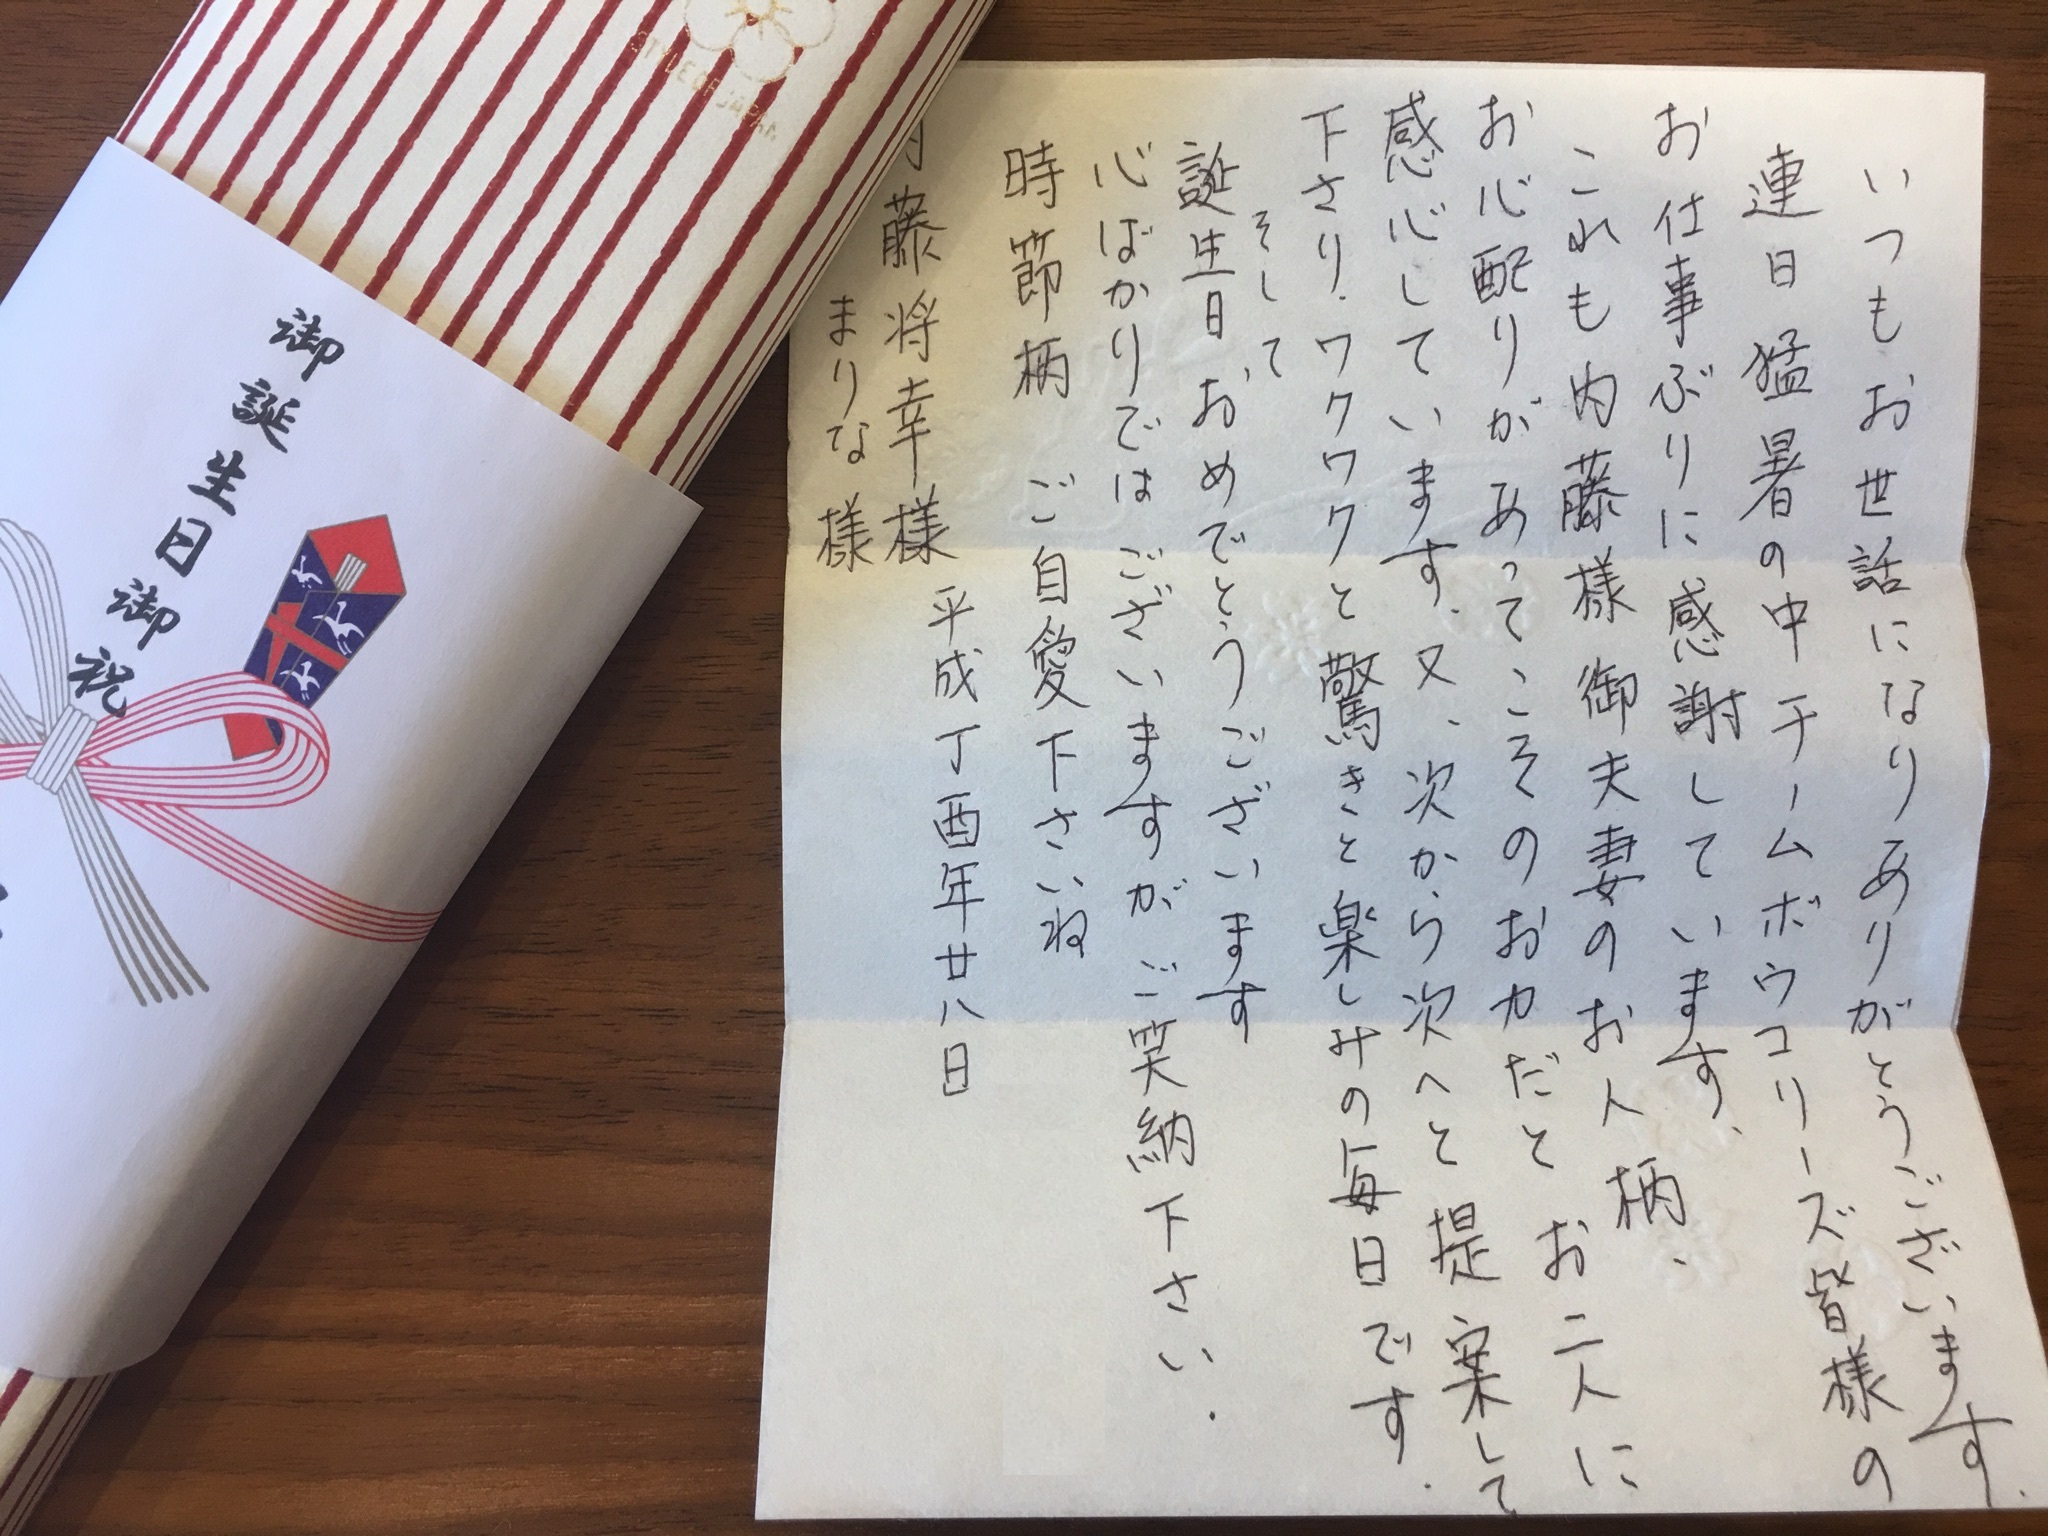 いつもお世話になりありがとうございます。
連日猛暑の中チームボウコリーズ皆様の
お仕事ぶりに感謝しています。
これも内藤様御夫妻のお人柄、
お心配りがあってこそのお力だとお二人に
感心しています。又、次から次へと提案して
下さり、ワクワクと驚きと楽しみの毎日です。
そして
誕生日おめでとうございます
心ばかりではございますがご笑納下さい。
時節柄 ご自愛下さいね
平成丁酉年廿八日
内藤将幸様
まりな様
御誕生日御祝
STYLE OF JAPAN